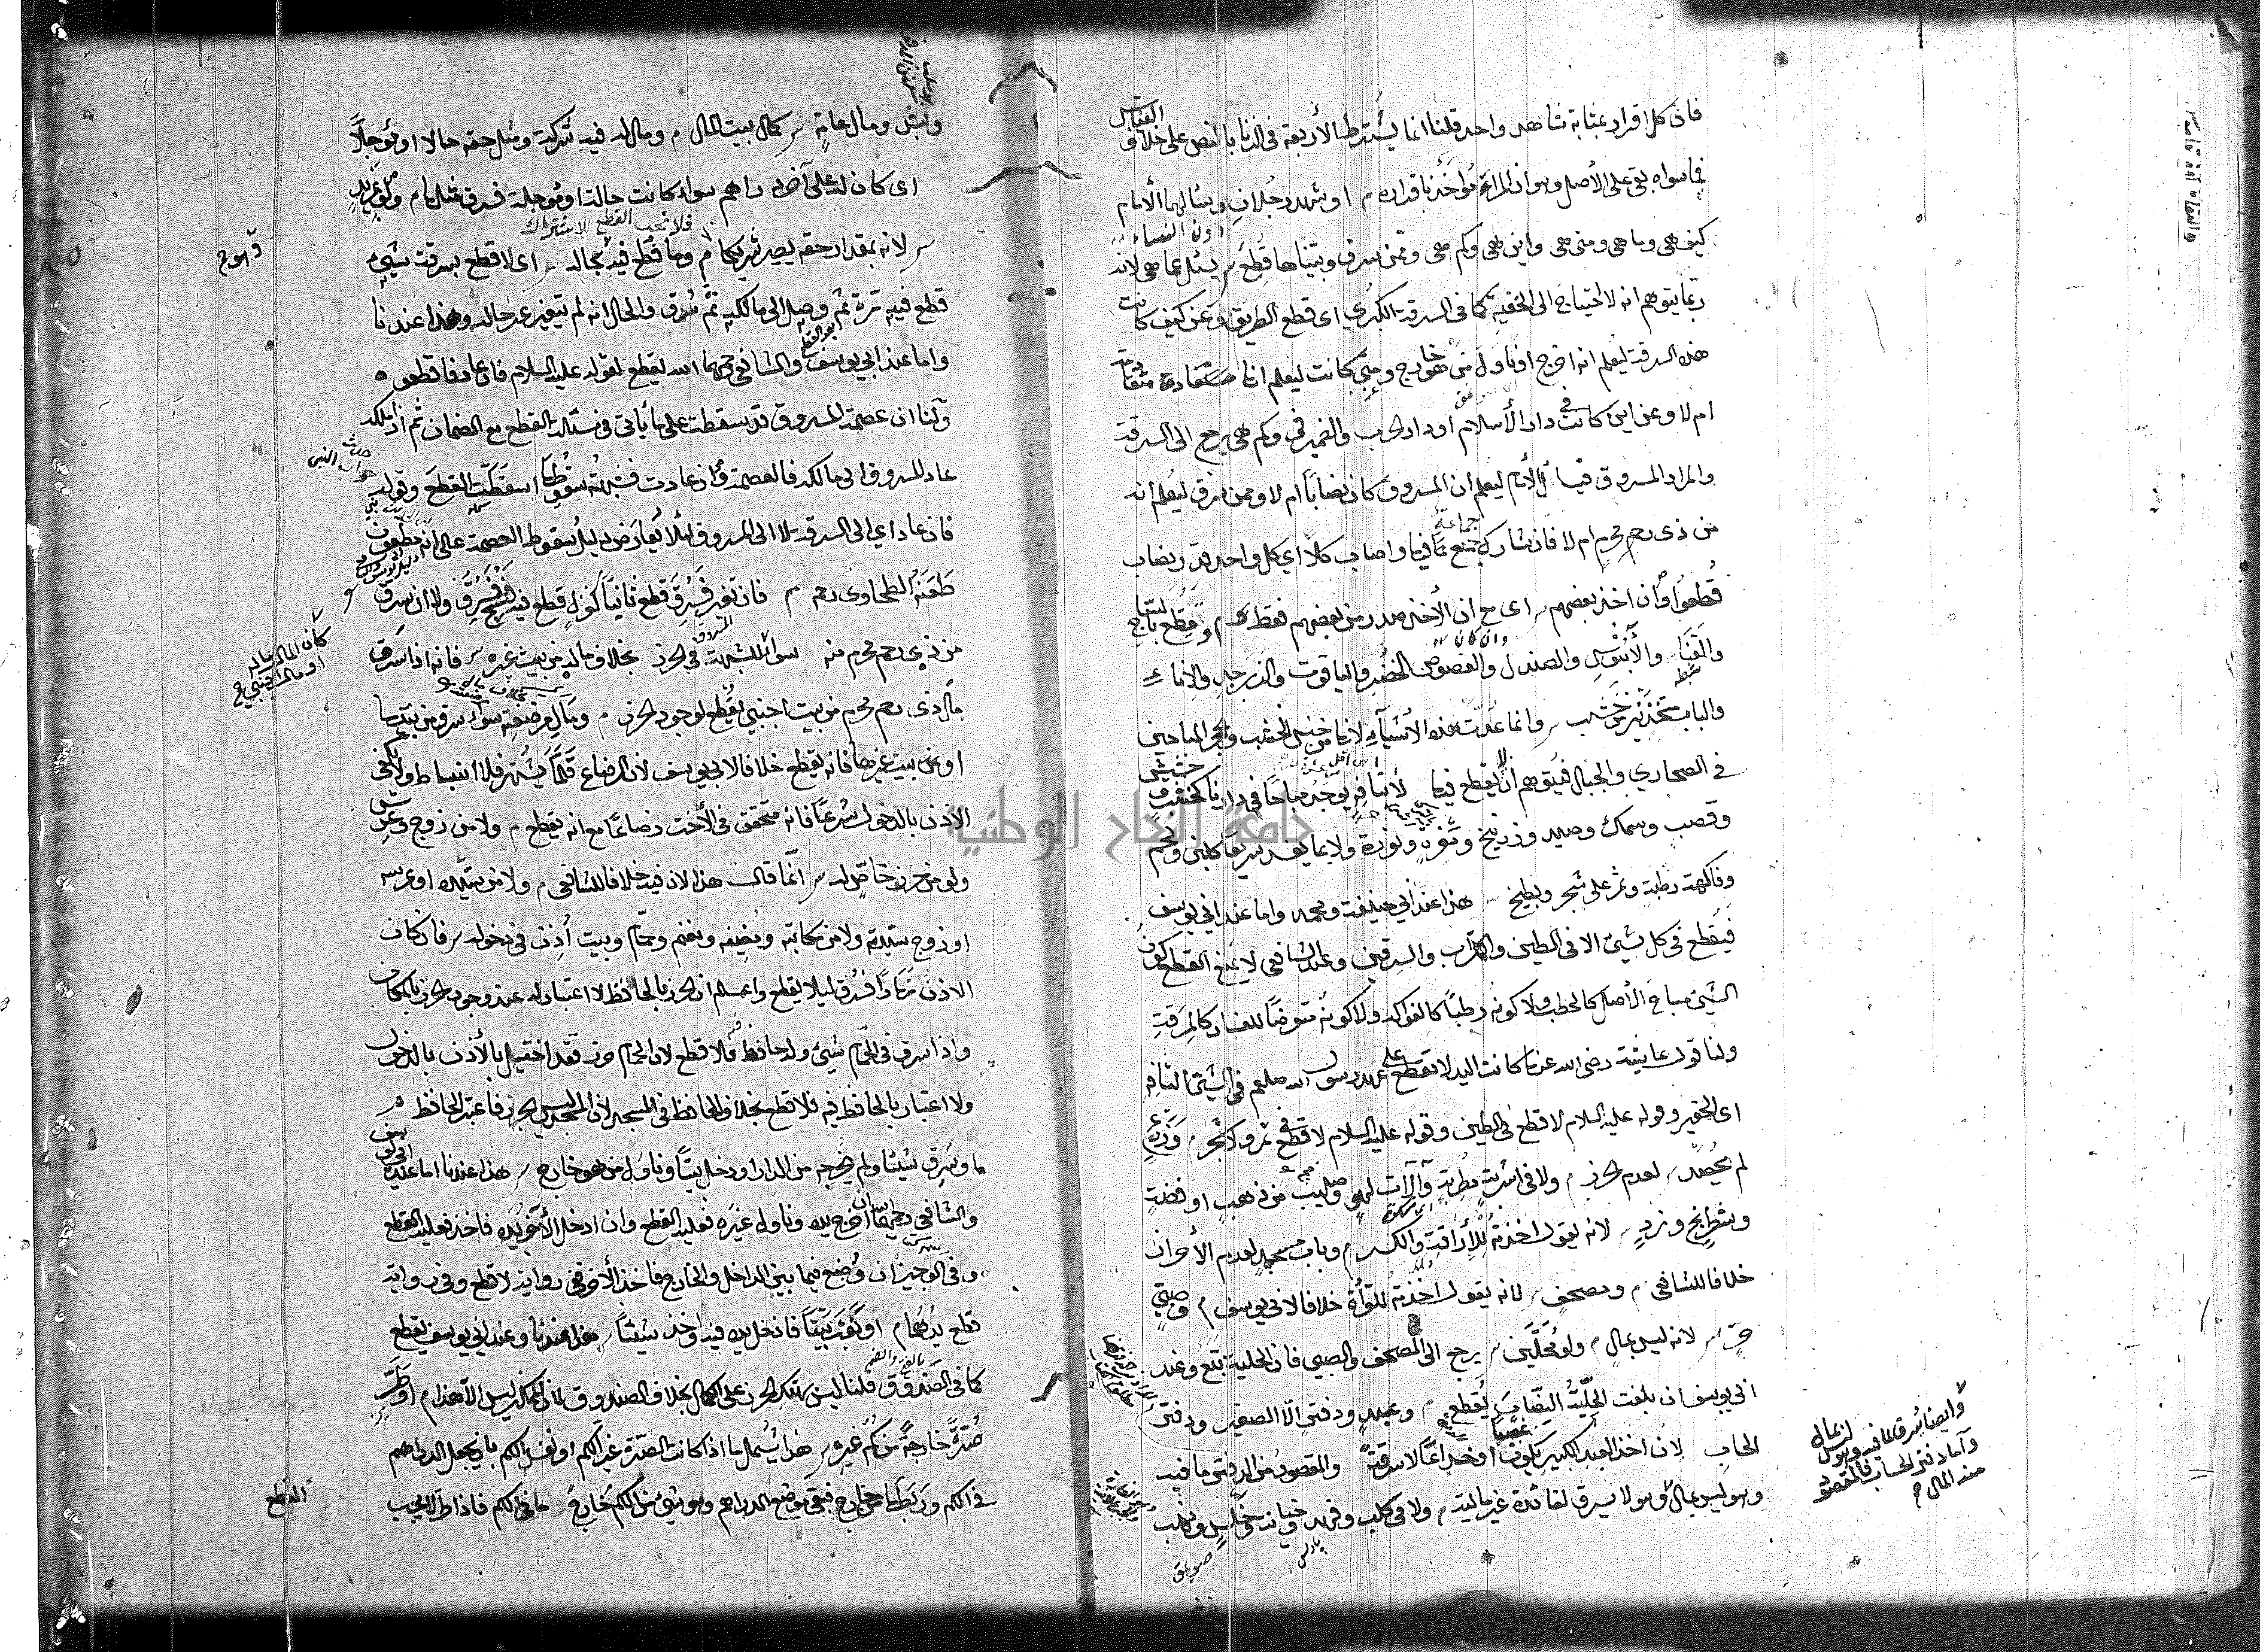 فان كل اقرار بمثابة شاهد واحد قلنا انما يشترط الأربعة في الزنا بالنص على خلاف القياس
فما سواه بقي على الأصل وهو ان المرأ مؤاخذ باقراره م او شهد رجلان وسألهما الأمام
دون النساء
كيف هي وما هي ومتى هي واين هي وكم هي وممن سرق وبيناها قطع س يسئل عما هي لانه
ربما يتوهم انه لا احتياج الى الخفية كما في السرقة الكبرى اى قطع الطريق وعن كيف كانت
هذه السرقة ليعلم انه اخرج او ناول من هو خارج ومتى كانت ليعلم انها متقادمة
ام لا وعن اين كانت في دار الأسلام او دار الحرب والضمير في وكم هي يرجع الى السرقة
والمراد المسروق فيسأل الأمام ليعلم ان المسروق كان نصابا ام لا وممن سرق ليعلم انه
من ذي رحم محرم ام لا فان شارك جمع فيها واصاب كلا اي كل واحد قدر نصاب
جماعة
قطعوا وان اخذ بعضهم س اى مع ان الأخذ صدر من بعضهم فقط م وقطع بالساج
والقنا والأبنوس والصندل والفصوص الخضر والياقوت والزبرجد والاناء
والباب متخذين من خشب س وانما عدت هذه الاشياء لانها من جنس الخشب والحجر المباحين
في الصحاري والجبال فيتوهم ان لا يقطع فيها لا بتافه يوجد مباحا في دارنا كخشب وحشيش
وقصب وسمك وصيد وزرنيخ ومغرة ونورة ولا بما يفسد سريعا كلبن ولحم
وفاكهة رطبة وثمر على شجر وبطيخ س هذا عند ابي حنيفة ومحمد واما عند ابي يوسف
فيقطع في كل شيئ الا في الطين والتراب والسرقين وعند الشافعي لا يمنع القطع كون
الشيئ مباح الأصل كالحطب ولا كونه رطبا كالفواكه ولا كونه متعرضا للفساد كالمرقة
ولنا قول عايشة رضى الله عنها كانت اليد لا تقطع على عهد رسول الله صلعم في الشيئ التافه
اى الحقير وقوله عليه السلام لا قطع في الطين وقوله عليه السلام لا قطع في ثمر ولا كثر م وزرع
لم يحصد س لعدم الحرز م ولا في اشربة مطربة وآلات لهو وصليب من ذهب او فضة
وشطرنج ونرد س لانه يقول اخذته للأراقة والكسر م وباب مسجد لعدم الأحراز
خلافا للشافعي م ومصحف س لانه يقول اخذته للقرأة خلافا لابي يوسف م وصبي
حر س لانه ليس بمال م ولو محليين س يرجع الى المصحف والصبي فان الحلية تبع وعند
ابي يوسف ان بلغت الحلية النصاب يقطع م وعبد ودفتر الا الصغير ودفتر
الحساب لان اخذ العبد الكبير يكون غصبا او خداعا لا سرقة والمقصود من الدفتر ما فيه
وهو ليس بمال وهو لا يسرق لفائدة غير ماليته م ولا في كلب وفهد وخيانة وخلس ونهب
وايضا يسرق لما فيه وهو ليس بمال
واما دفتر الحساب فالمقصود
منه المال
ونبش ومال عامة س كمال بيت المال م ومال له فيه شركة ومثل حقه حالا او مؤجلا
اى كان له على آخر دراهم سواء كانت حالة او مؤجلة فسرق مثلها م ولو بمزيد
فلا يجب القطع للاشتراك
س لانه بمقدار حقه يصير شريكا م وما قطع فيه بحاله س اى لا قطع بسرقة شيئ
قطع فيه مرة ثم وصل الى مالكه ثم سرق والحال انه لم يتغير عن حاله وهذا عندنا
واما عند ابي يوسف والشافعي رحمهما الله يقطع لقوله عليه السلام فان عاد فاقطعوه
ولنا ان عصمة المسروق قد سقطت على ما يأتي في مسئلة القطع مع الضمان ثم اذا
عاد المسروق الى مالكه فالعصمة وان عادت فشبهة سقوطها اسقطت القطع وقوله
فان عاد اي الى السرقة لا الى المسروق لئلا يعارض دليل سقوط العصمة على انه مطعون
طعنه الطحاوى رحمه م فان تغير فسرق قطع ثانيا كغزل قطع فيه فنسج فسرق ولا ان سرق
من ذي رحم محرم منه سواء للشبهة في الحرز بخلاف ماله من بيت غيره س فانه اذا سرق
كان المال ماله
او مال اجنبي
مال ذي رحم محرم من بيت اجنبي يقطع لوجود الحرز م ومال مرضعة سواء سرق من بيتها
او من بيت غيرها فانه يقطع خلافا لابي يوسف لان الرضاع قلما يشتهر فلا انبساط ولا يكفي
الاذن بالدخول شرعا فانه متحقق في الأخت رضاعا مع انه يقطع م ولا من زوج وعرس
ولو من حرز خاص له س انما قال هذا لان فيه خلافا للشافعي م ولا من سيده او عرسه
او زوج سيدته ولا من مكاتبه وضيفه ومغنم وحمام وبيت أذن في دخوله س فان كان
الاذن نهارا فسرق ليلا يقطع واعلم ان الحرز بالحافظ لا اعتبار له عند وجود الحرز بالمكان
واذا سرق في الحمام شيئ وله حافظ فلا قطع لان الحمام حرز فقد اختل بالأذن بالدخول
ولا اعتبار بالحافظ فيه فلا قطع بخلاف الحافظ في المسجد لان المسجد ليس بحرز فاعتبر الحافظ م
ما وسرق شيئا ولم يخرجه من الدار او دخل بيتا وناول من هو خارج س هذا عندنا اما عند ابي يوسف
والشافعي رحمهما الله ان اخرج يده وناول غيره فعليه القطع وان ادخل الآخر يده فاخذ فعليه القطع
وفي الوجيز ان وضع فيما بين الداخل والخارج فاخذ الأخر ففي رواية لا قطع وفي رواية
قطع يداهما م او نقب بيتا فادخل يده فيه واخذ شيئا س هذا عندنا وعند ابي يوسف يقطع
كما في الصندوق قلنا ليس هتك الحرز على الكمال بخلاف الصندوق فان الممكن ليس الا هذا م او طر
صرة خارجة من كم غيره س هذا يشمل ما اذا كانت الصرة غير الكم او نفس الكم بان يجعل الدراهم
في الكم وربطها من خارج فبقي موضع الدراهم وهو شيئ من الكم خارج ما في الكم فاذا طر لا يجب
القطع
جامعة النجاح الوطنية